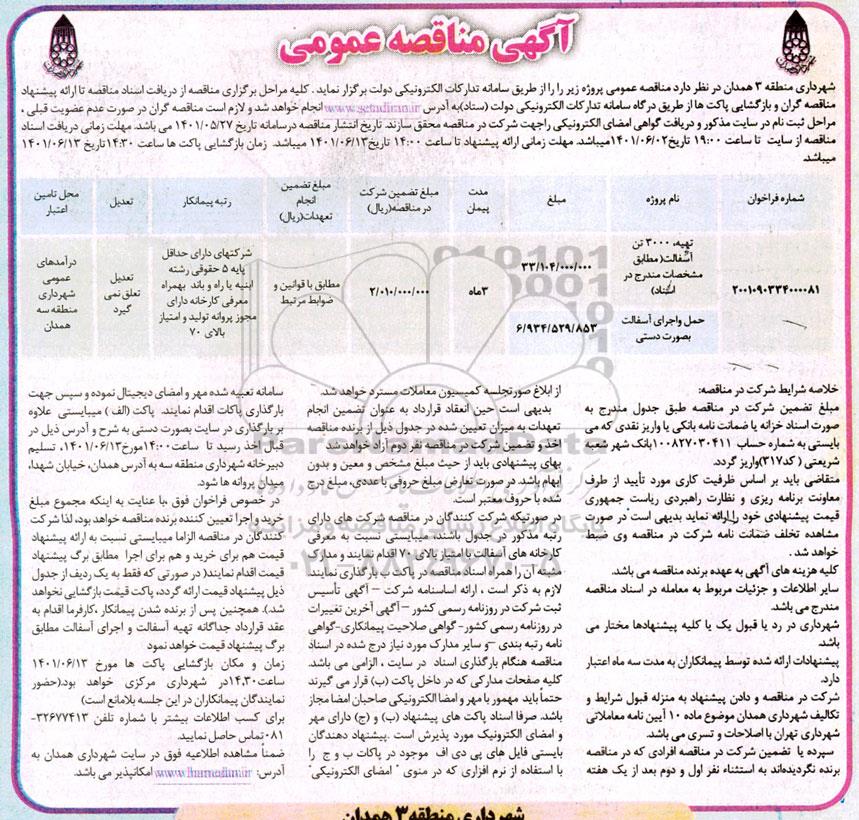 آگهی مناقصه عمومی
شهرداری منطقه ۳ همدان در نظر دارد مناقصه عمومی پروژه زیر را را از طریق سامانه تدارکات الکترونیکی دولت برگزار نماید . کلیه مراحل برگزاری مناقصه از دریافت اسناد مناقصه تا ارائه پیشنهاد
مناقصه گران و بازگشایی پاکت ها از طریق درگاه سامانه تدارکات الکترونیکی دولت (ستاد)به آدرس www.setadiran.ir انجام خواهد شد و لازم است مناقصه گران در صورت عدم عضویت قبلی ،
مراحل ثبت نام در سایت مذکور و دریافت گواهی امضای الکترونیکی راجهت شرکت در مناقصه محقق سازند. تاریخ انتشار مناقصه درسامانه تاریخ ۱۴۰۱/۰۵/۲۷ می باشد. مهلت زمانی دریافت اسناد
مناقصه از سایت تا ساعت ۱۹:۰۰ تاریخ ۱۴۰۱/۰۶/۰۲میباشد. مهلت زمانی ارائه پیشنهاد تا ساعت ۱۴:۰۰ تاریخ۱۴۰۱/۰۶/۱۳ میباشد. زمان بازگشایی پاکت ها ساعت ۱۴:۳۰تاریخ ۱۴۰۱/۰۶/۱۳
میباشد.
شماره فراخوان
نام پروژه
مبلغ
مدت پیمان
مبلغ تضمین شرکت در مناقصه(ریال)
مبلغ تضمین انجام تعهدات(ریال)
رتبه پیمانکار
تعدیل
محل تامین اعتبار
۲۰۰۱۰۹۰۳۳۴۰۰۰۰۸۱
تهیه، ۳۰۰۰ تن
آسفالت( مطابق
مشخصات مندرج در
اسناد)
۳۳/۱۰۴/۰۰۰/۰۰۰
حمل واجرای آسفالت
بصورت دستی
۶/۹۳۴/۵۲۹/۸۵۳
۳ماه
۲/۰۱۰/۰۰۰/۰۰۰
مطابق با قوانین و
ضوابط مرتبط
شرکتهای دارای حداقل
پایه ۵ حقوقی رشته
ابنیه یا راه و باند بهمراه
معرفی کارخانه دارای
مجوز پروانه تولید و امتیاز
بالای ۷۰
تعدیل
تعلق نمی
گیرد
درآمدهای
عمومی
شهرداری
منطقه سه
همدان
خلاصه شرایط شرکت در مناقصه:
مبلغ تضمین شرکت در مناقصه طبق جدول مندرج به
صورت اسناد خزانه یا ضمانت نامه بانکی یا واریز نقدی که می
بایستی به شماره حساب ۱۰۰۸۲۷۰۳۰۴۱۱بانک شهر شعبه
شریعتی ( کد۳۱۷)واریز گردد.
متقاضی باید بر اساس ظرفیت کاری مورد تأیید از طرف
معاونت برنامه ریزی و نظارت راهبردی ریاست جمهوری
قیمت پیشنهادی خود را ارائه نماید بدیهی است در صورت
مشاهده تخلف ضمانت نامه شرکت در مناقصه وی ضبط
خواهد شد .
کلیه هزینه های آگهی به عهده برنده مناقصه می باشد.
سایر اطلاعات و جزئیات مربوط به معامله در اسناد مناقصه
مندرج می باشد.
شهرداری در رد یا قبول یک یا کلیه پیشنهادها مختار می
باشد.
پیشنهادات ارائه شده توسط پیمانکاران به مدت سه ماه اعتبار
دارد.
شرکت در مناقصه و دادن پیشنهاد به منزله قبول شرایط و
تکالیف شهرداری همدان موضوع ماده ۱۰ آیین نامه معاملاتی
شهرداری تهران با اصلاحات و تسری می باشد.
سپرده یا تضمین شرکت در مناقصه افرادی که در مناقصه
برنده نگردیده‌اند به استثناء نفر اول و دوم بعد از یک هفته
از ابلاغ صورتجلسه کمیسیون معاملات مسترد خواهد شد.
بدیهی است حین انعقاد قرارداد به عنوان تضمین انجام
تعهدات به میزان تعیین شده در جدول ذیل از برنده مناقصه
اخذ و تضمین شرکت در مناقصه نفر دوم آزاد خواهد شد
بهای پیشنهادی باید از حیث مبلغ مشخص و معین و بدون
ابهام باشد. در صورت تعارض مبلغ حروفی با عددی، مبلغ درج
شده با حروف معتبر است.
در صورتیکه شرکت کنندگان در مناقصه شرکت های دارای
رتبه مذکور در جدول باشند، میبایستی نسبت به معرفی
کارخانه های آسفالت با امتیاز بالای ۷۰ اقدام نمایند و مدارک
مثبته آن را همراه اسناد مناقصه در پاکت ب بارگذاری نمایند.
لازم به ذکر است ، ارائه اساسنامه شرکت – آگهی تأسیس
ثبت شرکت در روزنامه رسمی کشور – آگهی آخرین تغییرات
در روزنامه رسمی کشور- گواهی صلاحیت پیمانکاری-گواهی
نامه رتبه بندی –و سایر مدارک مورد نیاز درج شده در اسناد
مناقصه هنگام بارگذاری اسناد در سایت ، الزامی می باشد.
کلیه صفحات مدارکی که در داخل پاکت (ب) قرار می گیرند
حتماً باید مهمور با مهر و امضا الکترونیکی صاحبان امضا مجاز
باشد. صرفا اسناد پاکت های پیشنهاد (ب) و (ج) دارای مهر
و امضای الکترونیک مورد پذیرش است .پیشنهاد دهندگان
بایستی فایل های پی دی اف موجود در پاکات ب و ج را
با استفاده از نرم افزاری که در منوی " امضای الکترونیکی"
سامانه تعبیه شده مهر و امضای دیجیتال نموده و سپس جهت
بارگذاری پاکات اقدام نمایند. پاکت (الف ) میبایستی علاوه
بر بارگذاری در سایت بصورت دستی به شرح و آدرس ذیل در
قبال اخذ رسید تا ساعت۱۴:۰۰مورخ۱۴۰۱/۰۶/۱۳، تسلیم
دبیرخانه شهرداری منطقه سه به آدرس همدان، خیابان شهدا،
میدان پروانه ها شود.
در خصوص فراخوان فوق ،با عنایت به اینکه مجموع مبلغ
خرید و اجرا تعیین کننده برنده مناقصه خواهد بود، لذا شرکت
کنندگان در مناقصه الزاما میبایستی نسبت به ارائه پیشنهاد
قیمت هم برای خرید و هم برای اجرا مطابق برگ پیشنهاد
قیمت اقدام نمایند( در صورتی که فقط به یک ردیف از جدول
ذیل پیشنهاد قیمت ارائه گردد، پاکت قیمت بازگشایی نخواهد
شد.). همچنین پس از برنده شدن پیمانکار ،کارفرما اقدام به
عقد قرارداد جداگانه تهیه آسفالت و اجرای آسفالت مطابق
برگ پیشنهاد قیمت خواهد نمود
زمان و مکان بازگشایی پاکت ها مورخ ۱۴۰۱/۰۶/۱۳
ساعت۱۴:۳۰در شهرداری مرکزی خواهد بود.(حضور
نمایندگان پیمانکاران در این جلسه بلامانع است)
برای کسب اطلاعات بیشتر با شماره تلفن ۳۲۶۷۷۴۱۳-
۰۸۱ تماس حاصل نمایید.
ضمناً مشاهده اطلاعیه فوق در سایت شهرداری همدان به
آدرس: www.hamedan.ir امکانپذیر می باشد.
شهرداری منطقه ۳ همدان
ParsNamadData
۰۲۱-۸۸۳۴۹۶۷۰-۵